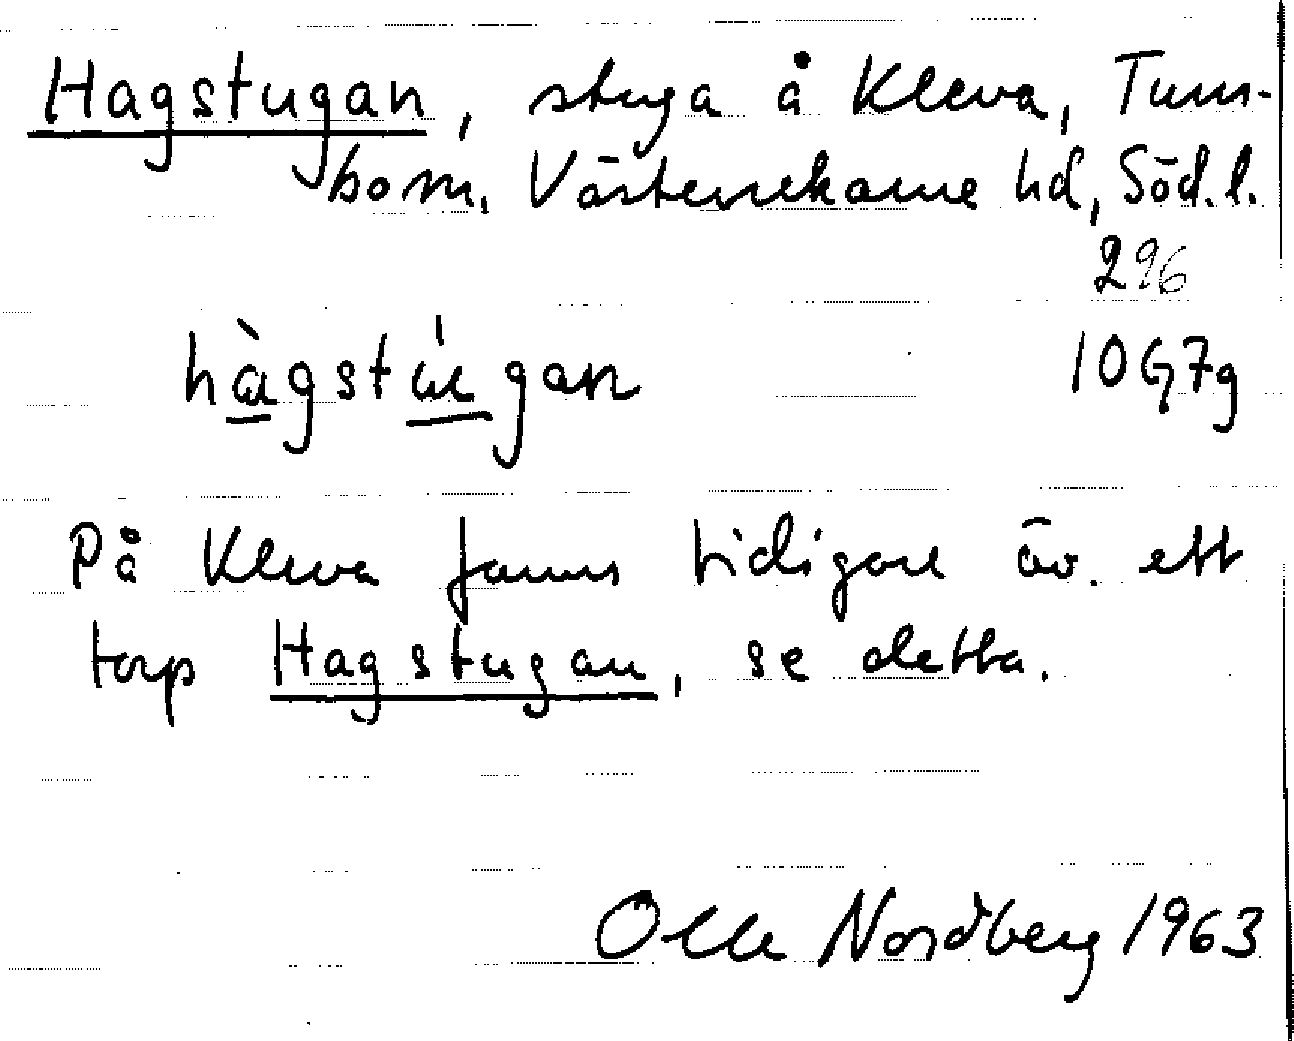 Hagstugan, stuga å Kleva, Tum-
bom. Västerrekarne hd, Söd.l.
296
hàgstúgan 10G7g
På Kleva fanns tidigare äv. ett
torp Hagstugan, se detta.
Olle Nordberg 1963